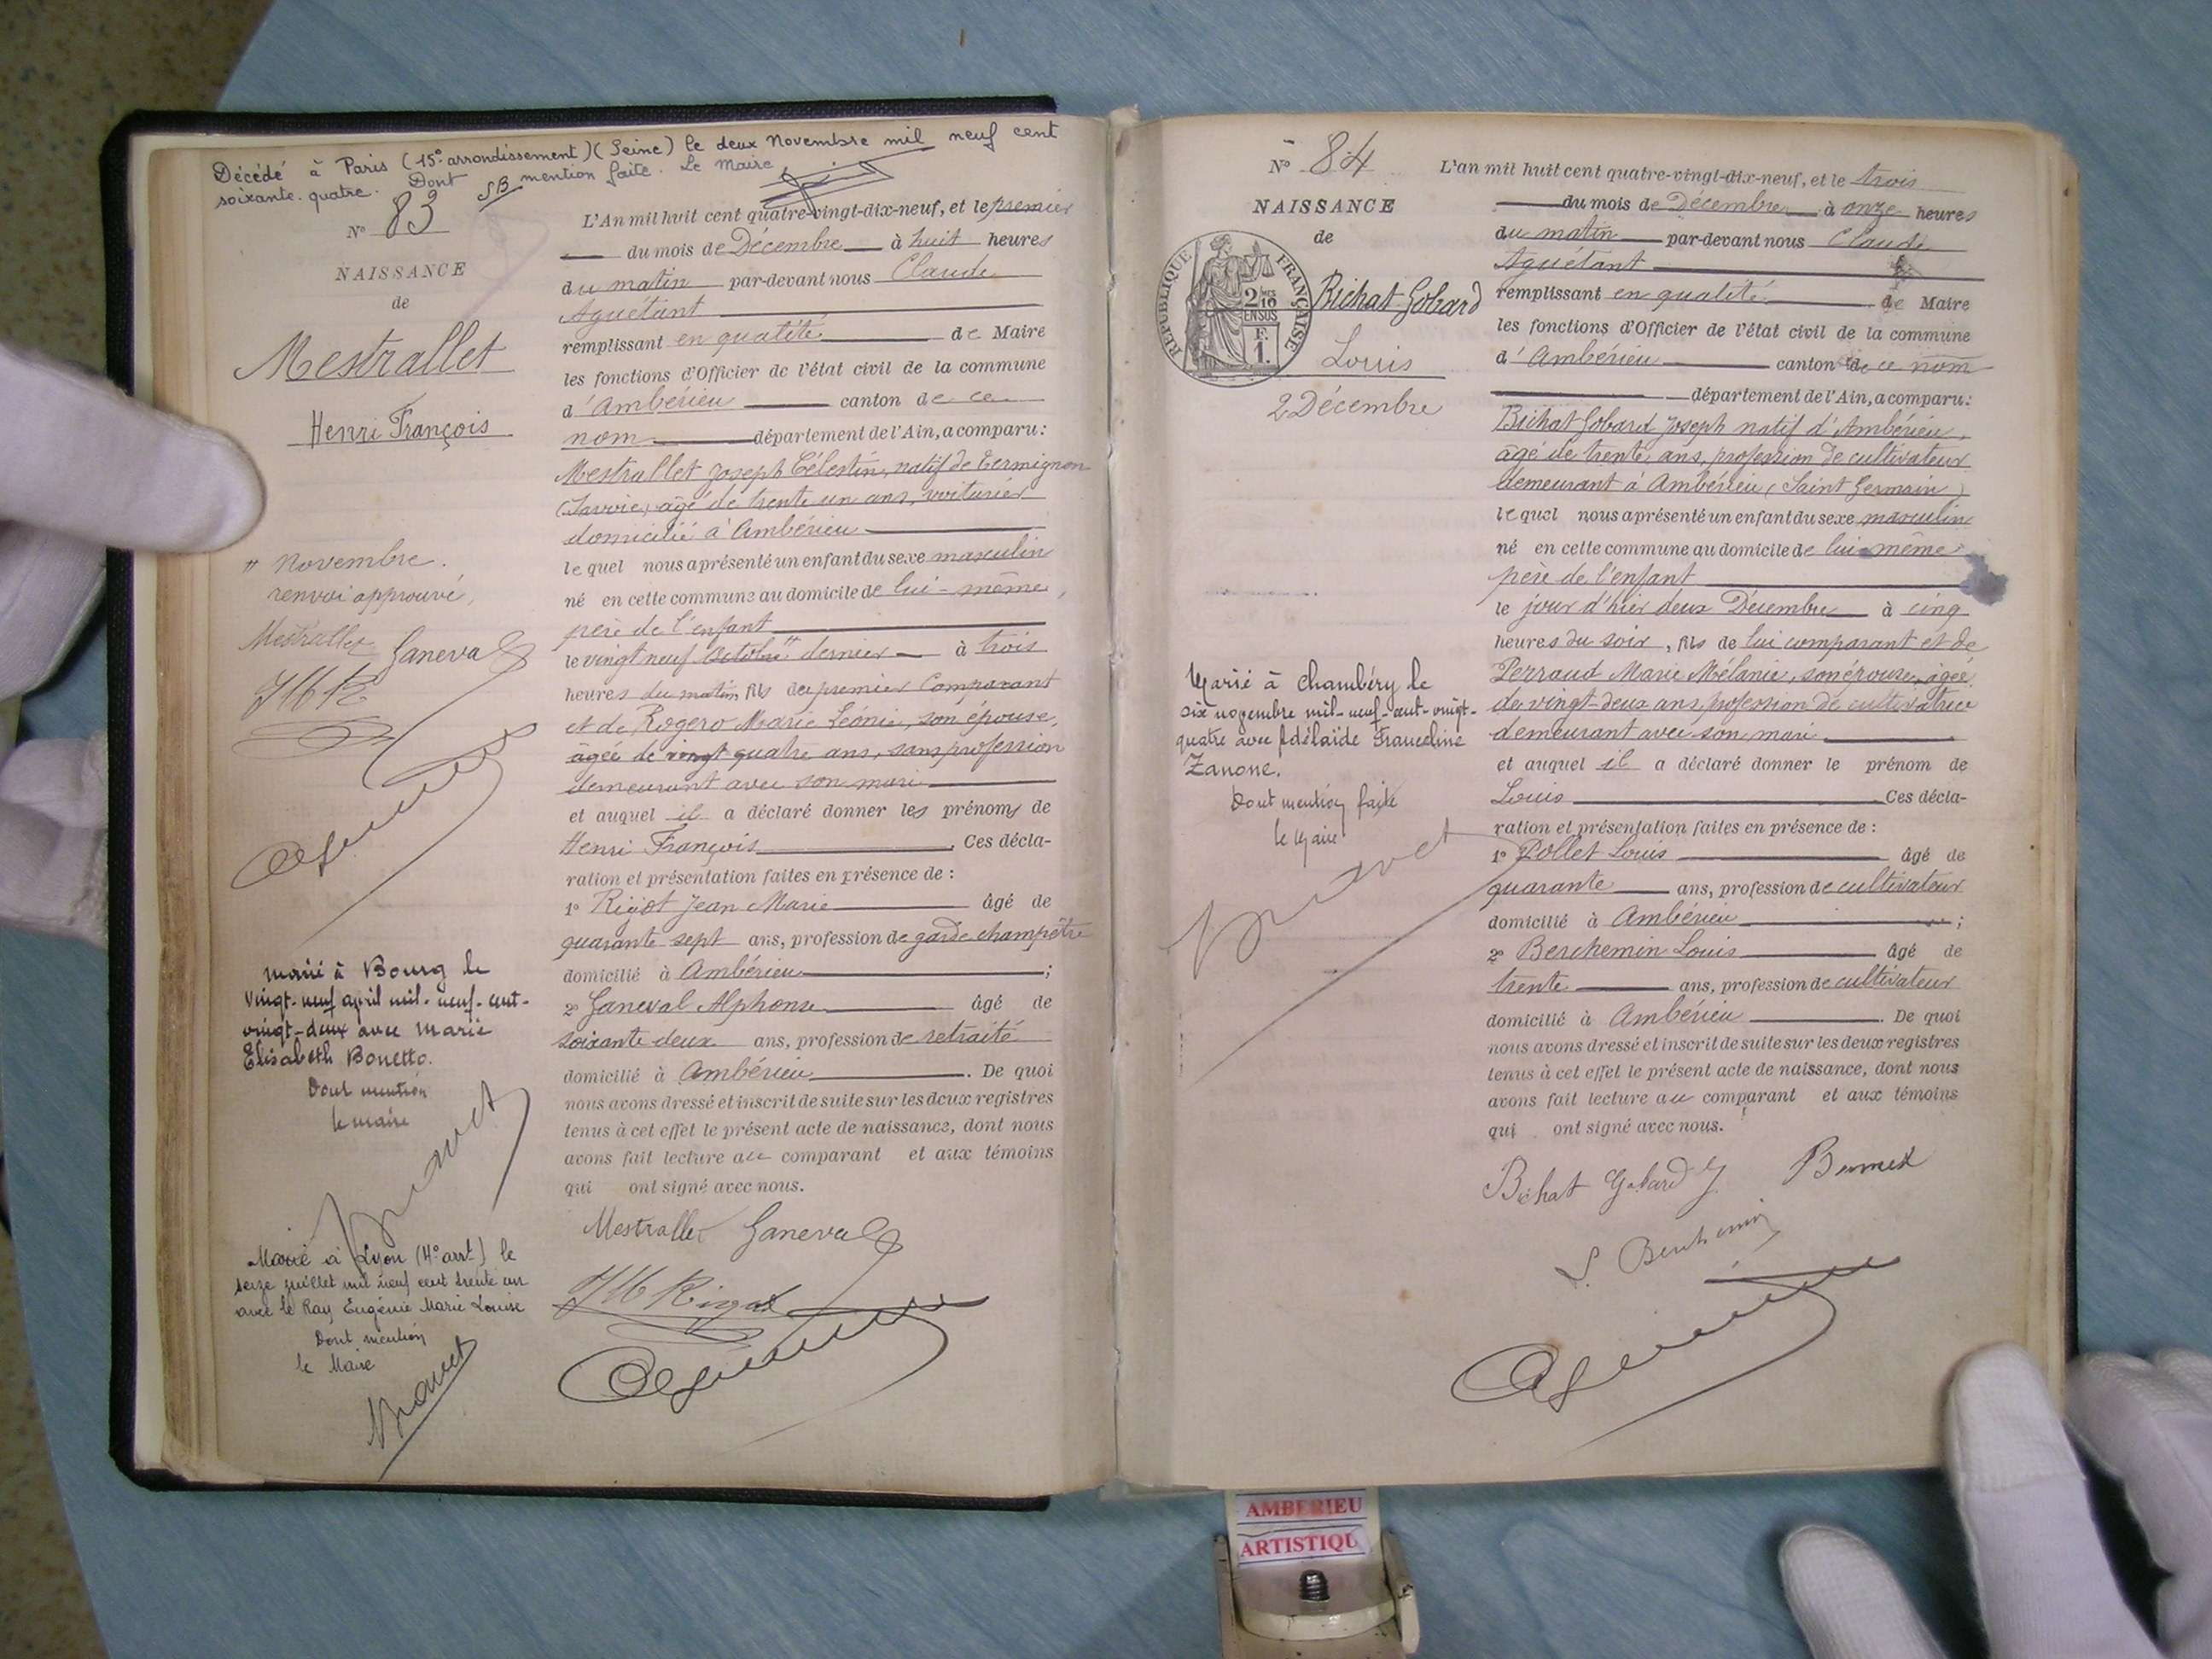 Décédé à Paris (15e arrondissement) (Seine) le deux Novembre mil neuf cent
soixante-quatre. Dont mention faite. Le Maire
SB
N° 83
NAISSANCE
de
Mestrallet
Henri François
" Novembre.
renvoi approuvé,
Mestrallet Ganeval
JM R
marié à Bourg le
vingt-neuf avril mil-neuf-cent-
vingt-deux avec Marie
Elisabeth Bonetto.
Dont mention
le maire
Marié à Lyon (4e arrt) le
seize juillet mil neuf cent trente un
avec Le Ray Eugénie Marie Louise
Dont mention
le Maire
L'An mil huit cent quatre-vingt-dix-neuf, et le premier
du mois de Décembre à huit heures
du matin par-devant nous Claude
Aguétant
remplissant en qualité de Maire
les fonctions d'Officier de l'état civil de la commune
d'Ambérieu canton de ce
nom département de l'Ain, a comparu :
Mestrallet Joseph Célestin, natif de Termignon
(Savoie) âgé de trente un ans, voiturier
domicilié à Ambérieu
lequel nous a présenté un enfant du sexe masculin
né en cette commune au domicile de lui-même,
père de l'enfant
le vingt neuf Octobre " dernier à trois
heures du matin, fils du premier Comparant
et de Rogero Marie Léonie, son épouse,
âgée de vingt quatre ans, sans profession
demeurant avec son mari
et auquel il a déclaré donner les prénoms de
Henri François. Ces décla-
ration et présentation faites en présence de :
1° Rigot Jean Marie âgé de
quarante sept ans, profession de garde champêtre
domicilié à Ambérieu ;
2° Ganeval Alphonse âgé de
soixante deux ans, profession de retraité
domicilié à Ambérieu. De quoi
nous avons dressé et inscrit de suite sur les deux registres
tenus à cet effet le présent acte de naissance, dont nous
avons fait lecture au comparant et aux témoins
qui ont signé avec nous.
Mestrallet Ganeval
JM Rigot
N° 84
NAISSANCE
de
RÉPUBLIQUE FRANÇAISE
2/10
EN SUS
F.
1.
Bichat Gobard
Louis
2 Décembre
Marié à Chambéry le
six novembre mil-neuf-cent-vingt-
quatre avec Adélaïde Franceline
Zanone.
Dont mention faite
le Maire
L'an mil huit cent quatre-vingt-dix-neuf, et le trois
du mois de Décembre à onze heures
du matin par-devant nous Claude
Aguétant
remplissant en qualité de Maire
les fonctions d'Officier de l'état civil de la commune
d'Ambérieu canton de ce nom
département de l'Ain, a comparu :
Bichat Gobard Joseph natif d'Ambérieu,
âgé de trente ans, profession de cultivateur
demeurant à Ambérieu (Saint Germain)
lequel nous a présenté un enfant du sexe masculin
né en cette commune au domicile de lui-même
père de l'enfant
le jour d'hier deux Décembre à cinq
heures du soir, fils de lui comparant et de
Perraud Marie Mélanie, son épouse, âgée
de vingt-deux ans, profession de cultivatrice
demeurant avec son mari
et auquel il a déclaré donner le prénom de
Louis Ces décla-
ration et présentation faites en présence de :
1° Pollet Louis âgé de
quarante ans, profession de cultivateur
domicilié à Ambérieu ;
2° Berchemin Louis âgé de
trente ans, profession de cultivateur
domicilié à Ambérieu. De quoi
nous avons dressé et inscrit de suite sur les deux registres
tenus à cet effet le présent acte de naissance, dont nous
avons fait lecture au comparant et aux témoins
qui ont signé avec nous.
Bichat Gobard J
L. Berchemin
AMBERIEU
ARTISTIQU